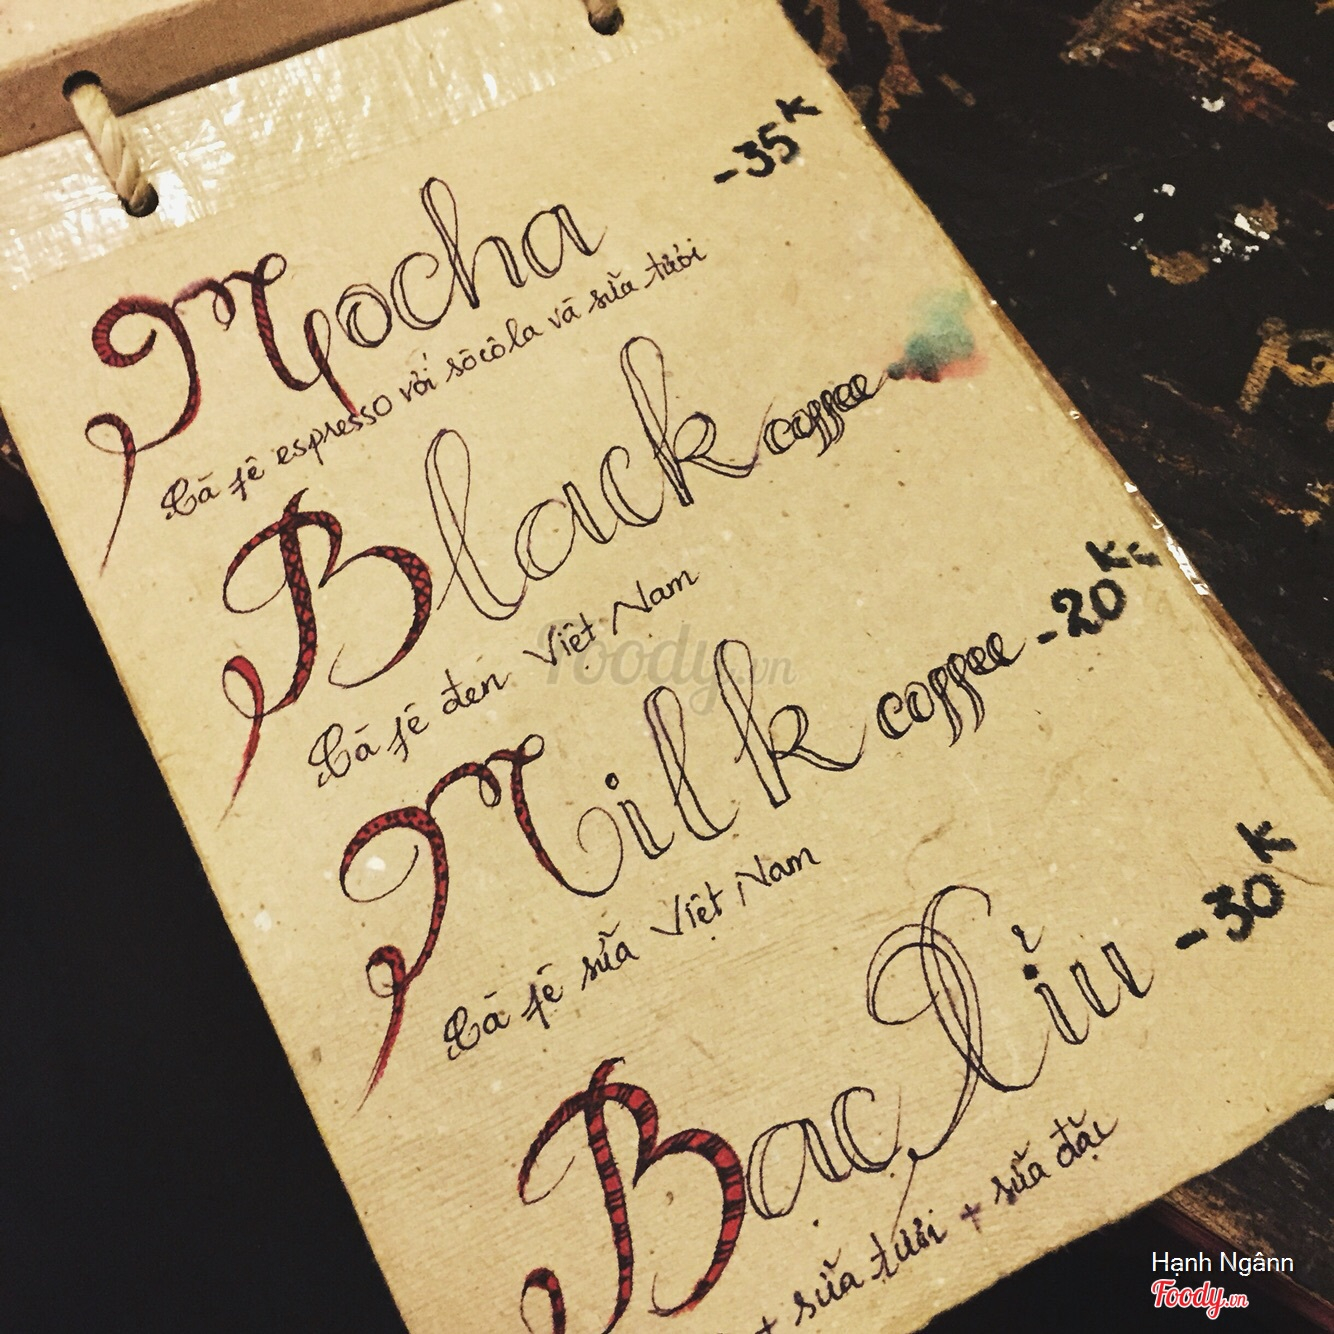 - 35K
Mocha
Cà fê espresso với sôcôla và sữa tươi
Black coffee
Cà fê đen Việt Nam
Milk coffee - 20K
Cà fê sữa Việt Nam
Bạc Xỉu - 30K
+ sữa tươi + sữa đặc
Foody.vn
Hạnh Ngânn
Foody.vn